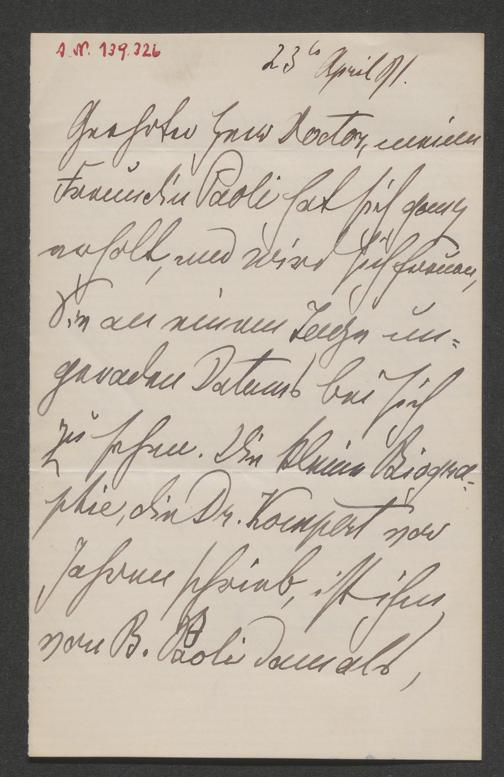 A.N. 139.326
23t April 91.
Geehrter Herr Doctor, meine
Freundin Paoli hat sich ganz
erholt, und wird sich freuen,
Sie an einem Tage un=
geraden Datums bei sich
zu sehen. Die kleine Biogra=
phie, die Dr. Kompert vor
Jahren schrieb, ist ihm
von B. Paoli damals,